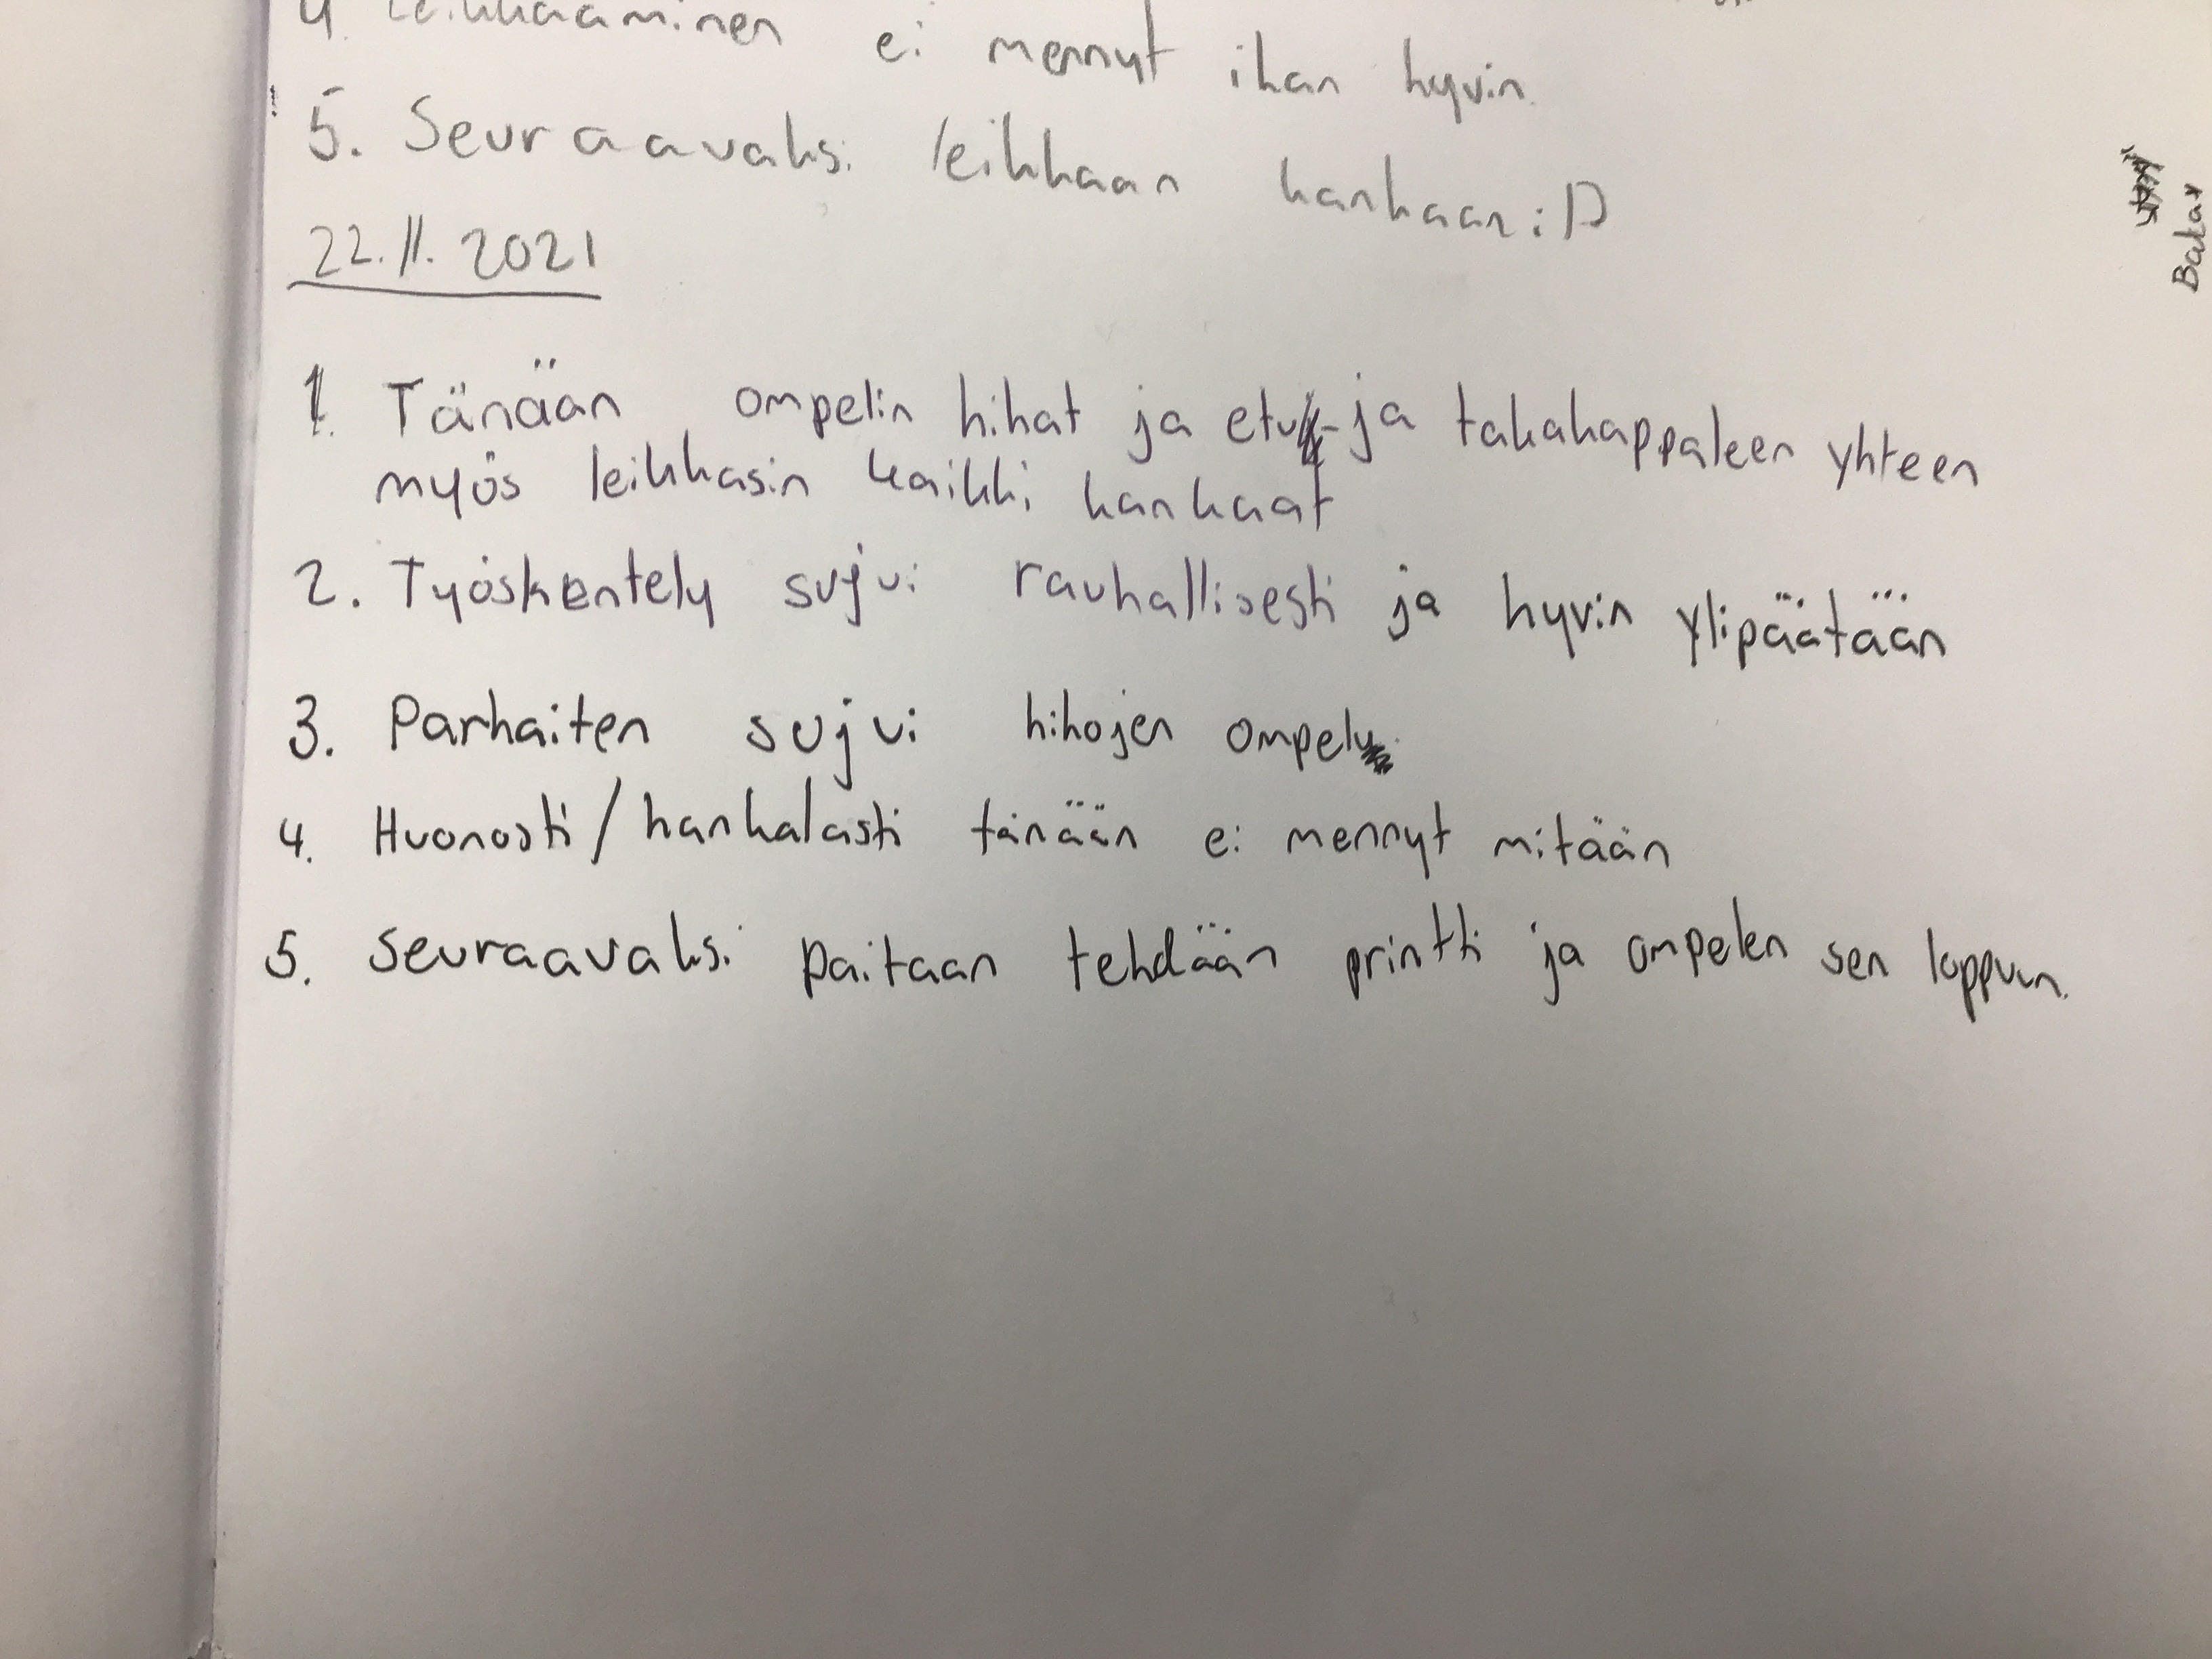 4. Leikkaaminen ei mennyt ihan hyvin.
5. Seuraavaksi leikkaan kankaan :D
22.11.2021
1. Tänään ompelin hihat ja etu- ja takakappaleen yhteen
myös leikkasin kaikki kankaat
2. Työskentely sujui rauhallisesti ja hyvin ylipäätään
3. Parhaiten sujui hihojen ompelu
4. Huonosti/hankalasti tänään ei mennyt mitään
5. Seuraavaksi paitaan tehdään printti ja ompelen sen loppuun.